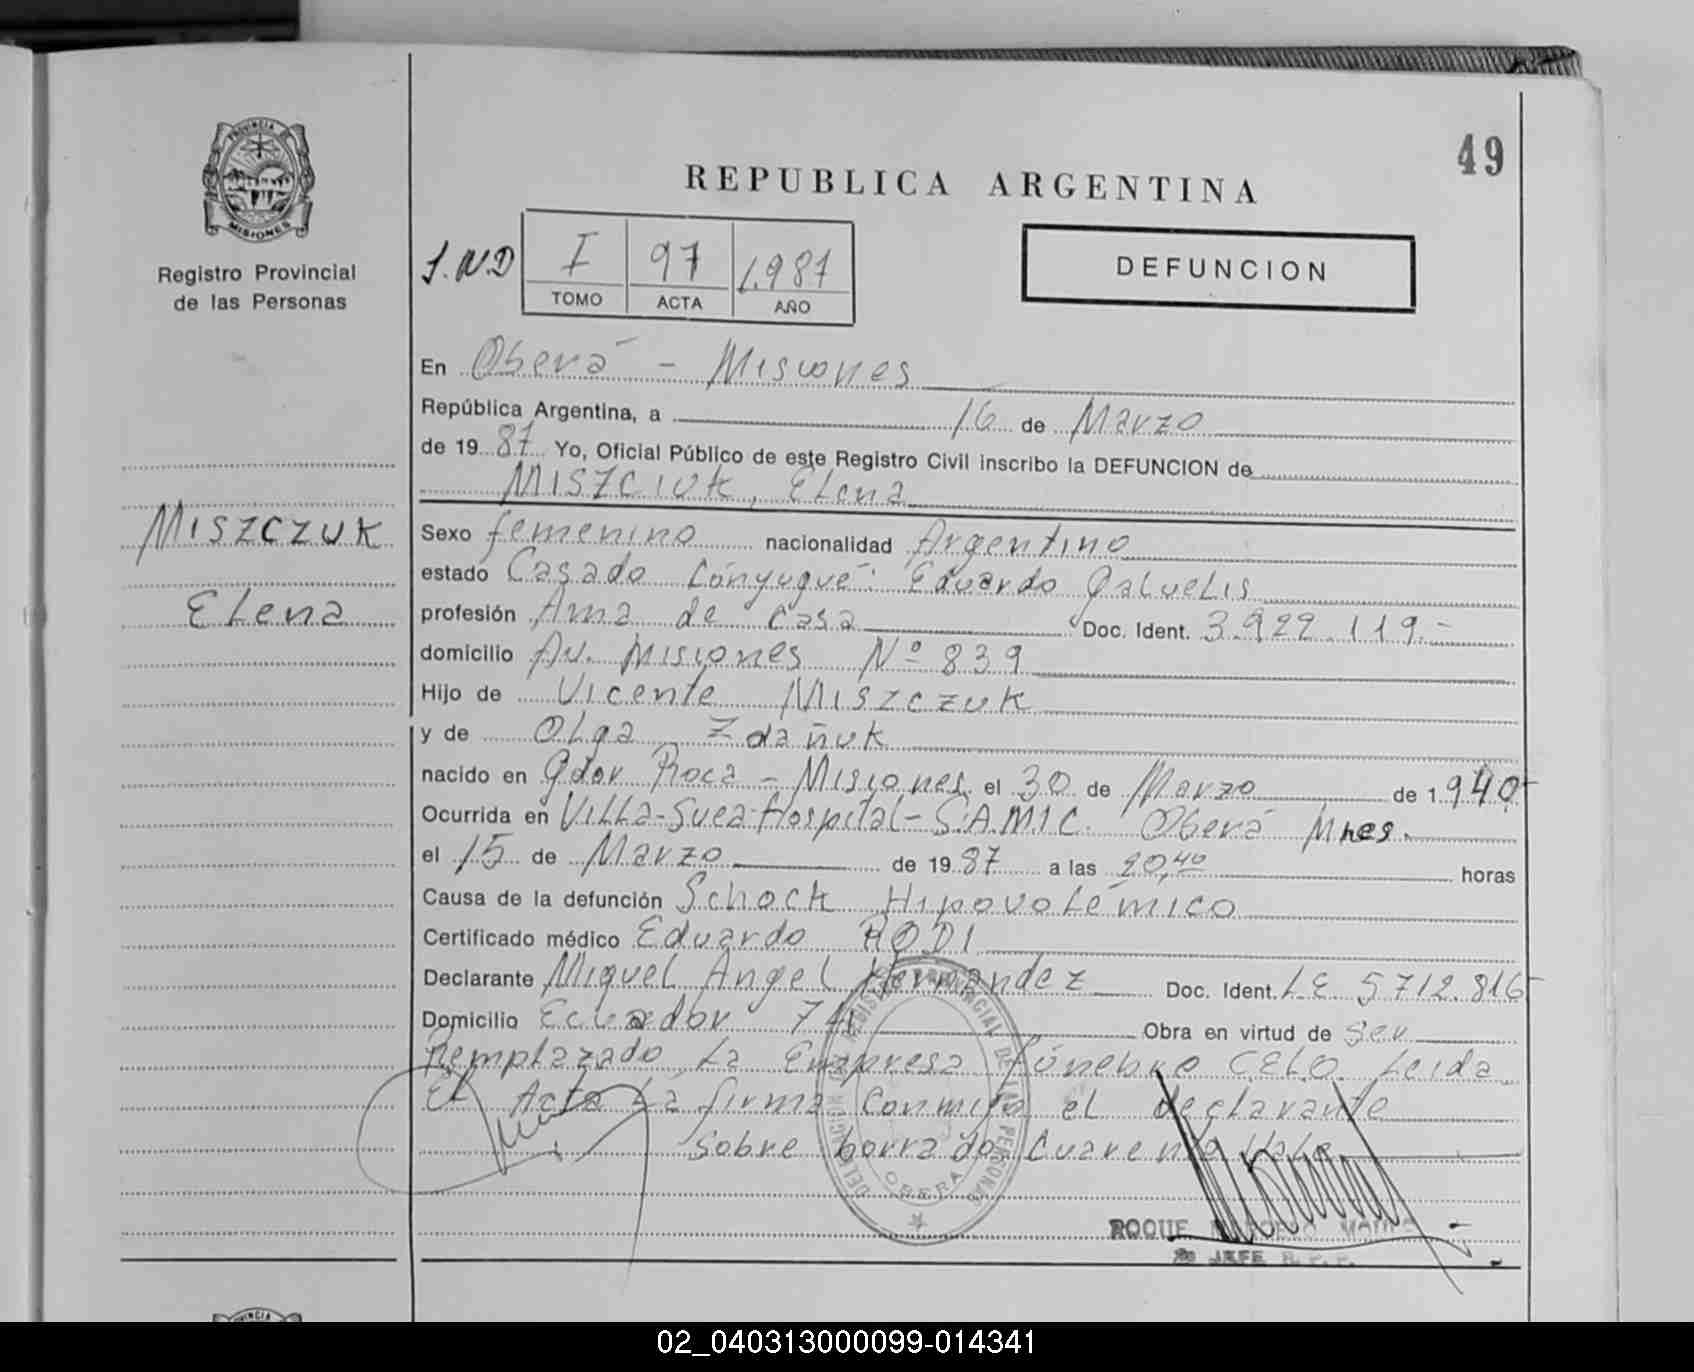 49
PROVINCIA DE
MISIONES
Registro Provincial
de las Personas
REPUBLICA ARGENTINA
I 97 1.987
TOMO ACTA AÑO
DEFUNCION
En Oberá - Misiones
República Argentina, a 16 de Marzo
de 19 87 Yo, Oficial Público de este Registro Civil inscribo la DEFUNCION de
MISZCIUK, Elena
MISZCZUK
Elena
Sexo femenino nacionalidad Argentino
estado Casado Cónyugue: Eduardo Galuelis
profesión Ama de casa Doc. Ident. 3.922.119.-
domicilio Av. Misiones Nº 839
Hijo de Vicente MISZCZUK
y de Olga Zdañuk
nacido en Gdor Roca - Misiones el 30 de Marzo de 1940-
Ocurrida en Villa-Svea-Hospital-S.A.M.I.C. Oberá Mnes.
el 15 de Marzo de 19 87 a las 20,40 horas
Causa de la defunción Schock Hipovolémico
Certificado médico Eduardo RODI
Declarante Miguel Angel Hernandez Doc. Ident. L.E 5712.816-
Domicilio Ecuador Obra en virtud de Ser
Remplazado La Empresa fúnebre CELO Leida
El Acta La firma Conmigo el declarante
Sobre borrado Cuarenta Vale
OBERA
ROQUE
JEFE R. P. P.
02_040313000099-014341